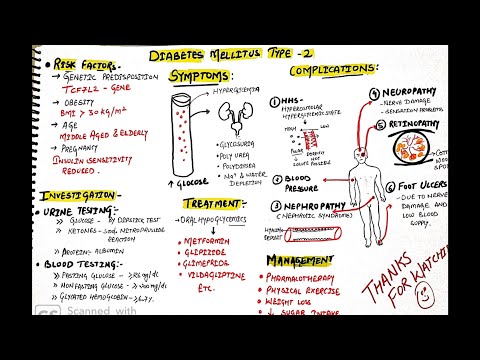 DIABETES MELLITUS TYPE - 2
RISK FACTORS:
→ GENETIC PREDISPOSITION
TCF7L2 - GENE
→ OBESITY
BMI > 30 KG/M²
→ AGE
MIDDLE AGED & ELDERLY
→ PREGNANCY
INSULIN SENSITIVITY
REDUCED.
INVESTIGATION -
URINE TESTING:
» GLUCOSE - BY DIPSTICK TEST
» KETONES - NITROPRUSSIDE
REACTION
» PROTEIN: ALBUMIN
BLOOD TESTING:
» FASTING GLUCOSE -
» NON FASTING GLUCOSE -
» GLYCATED HEMOGLOBIN -
Scanned with
SYMPTOMS:
HYPERGLYCEMIA
↑ GLUCOSE
→ GLYCOSURIA
→ POLY UREA
→ POLYDIPSIA
→ Na⁺ & WATER
DEPLETION
TREATMENT:
→ ORAL HYPOGLYCEMICS
→ METFORMIN
→ GLIPIZIDE
→ GLIMEPRIDE
→ VILDAGLIPTINE
ETC.
COMPLICATIONS:
① HHS -
HYPEROSMOLAR
HYPERGLYCEMIC STATE
② BLOOD
PRESSURE
③ NEPHROPATHY
(NEPHROTIC SYNDROME)
HYALINE
DEPOSIT
④ NEUROPATHY
- NERVE DAMAGE
- SENSATION PROBLEMS
⑤ RETINOPATHY
⑥ FOOT ULCERS
- DUE TO NERVE
DAMAGE AND
LOW BLOOD
SUPPLY.
MANAGEMENT
• PHARMACOTHERAPY
• PHYSICAL EXERCISE
• WEIGHT LOSS
• ↓ SUGAR INTAKE
THANKS
FOR